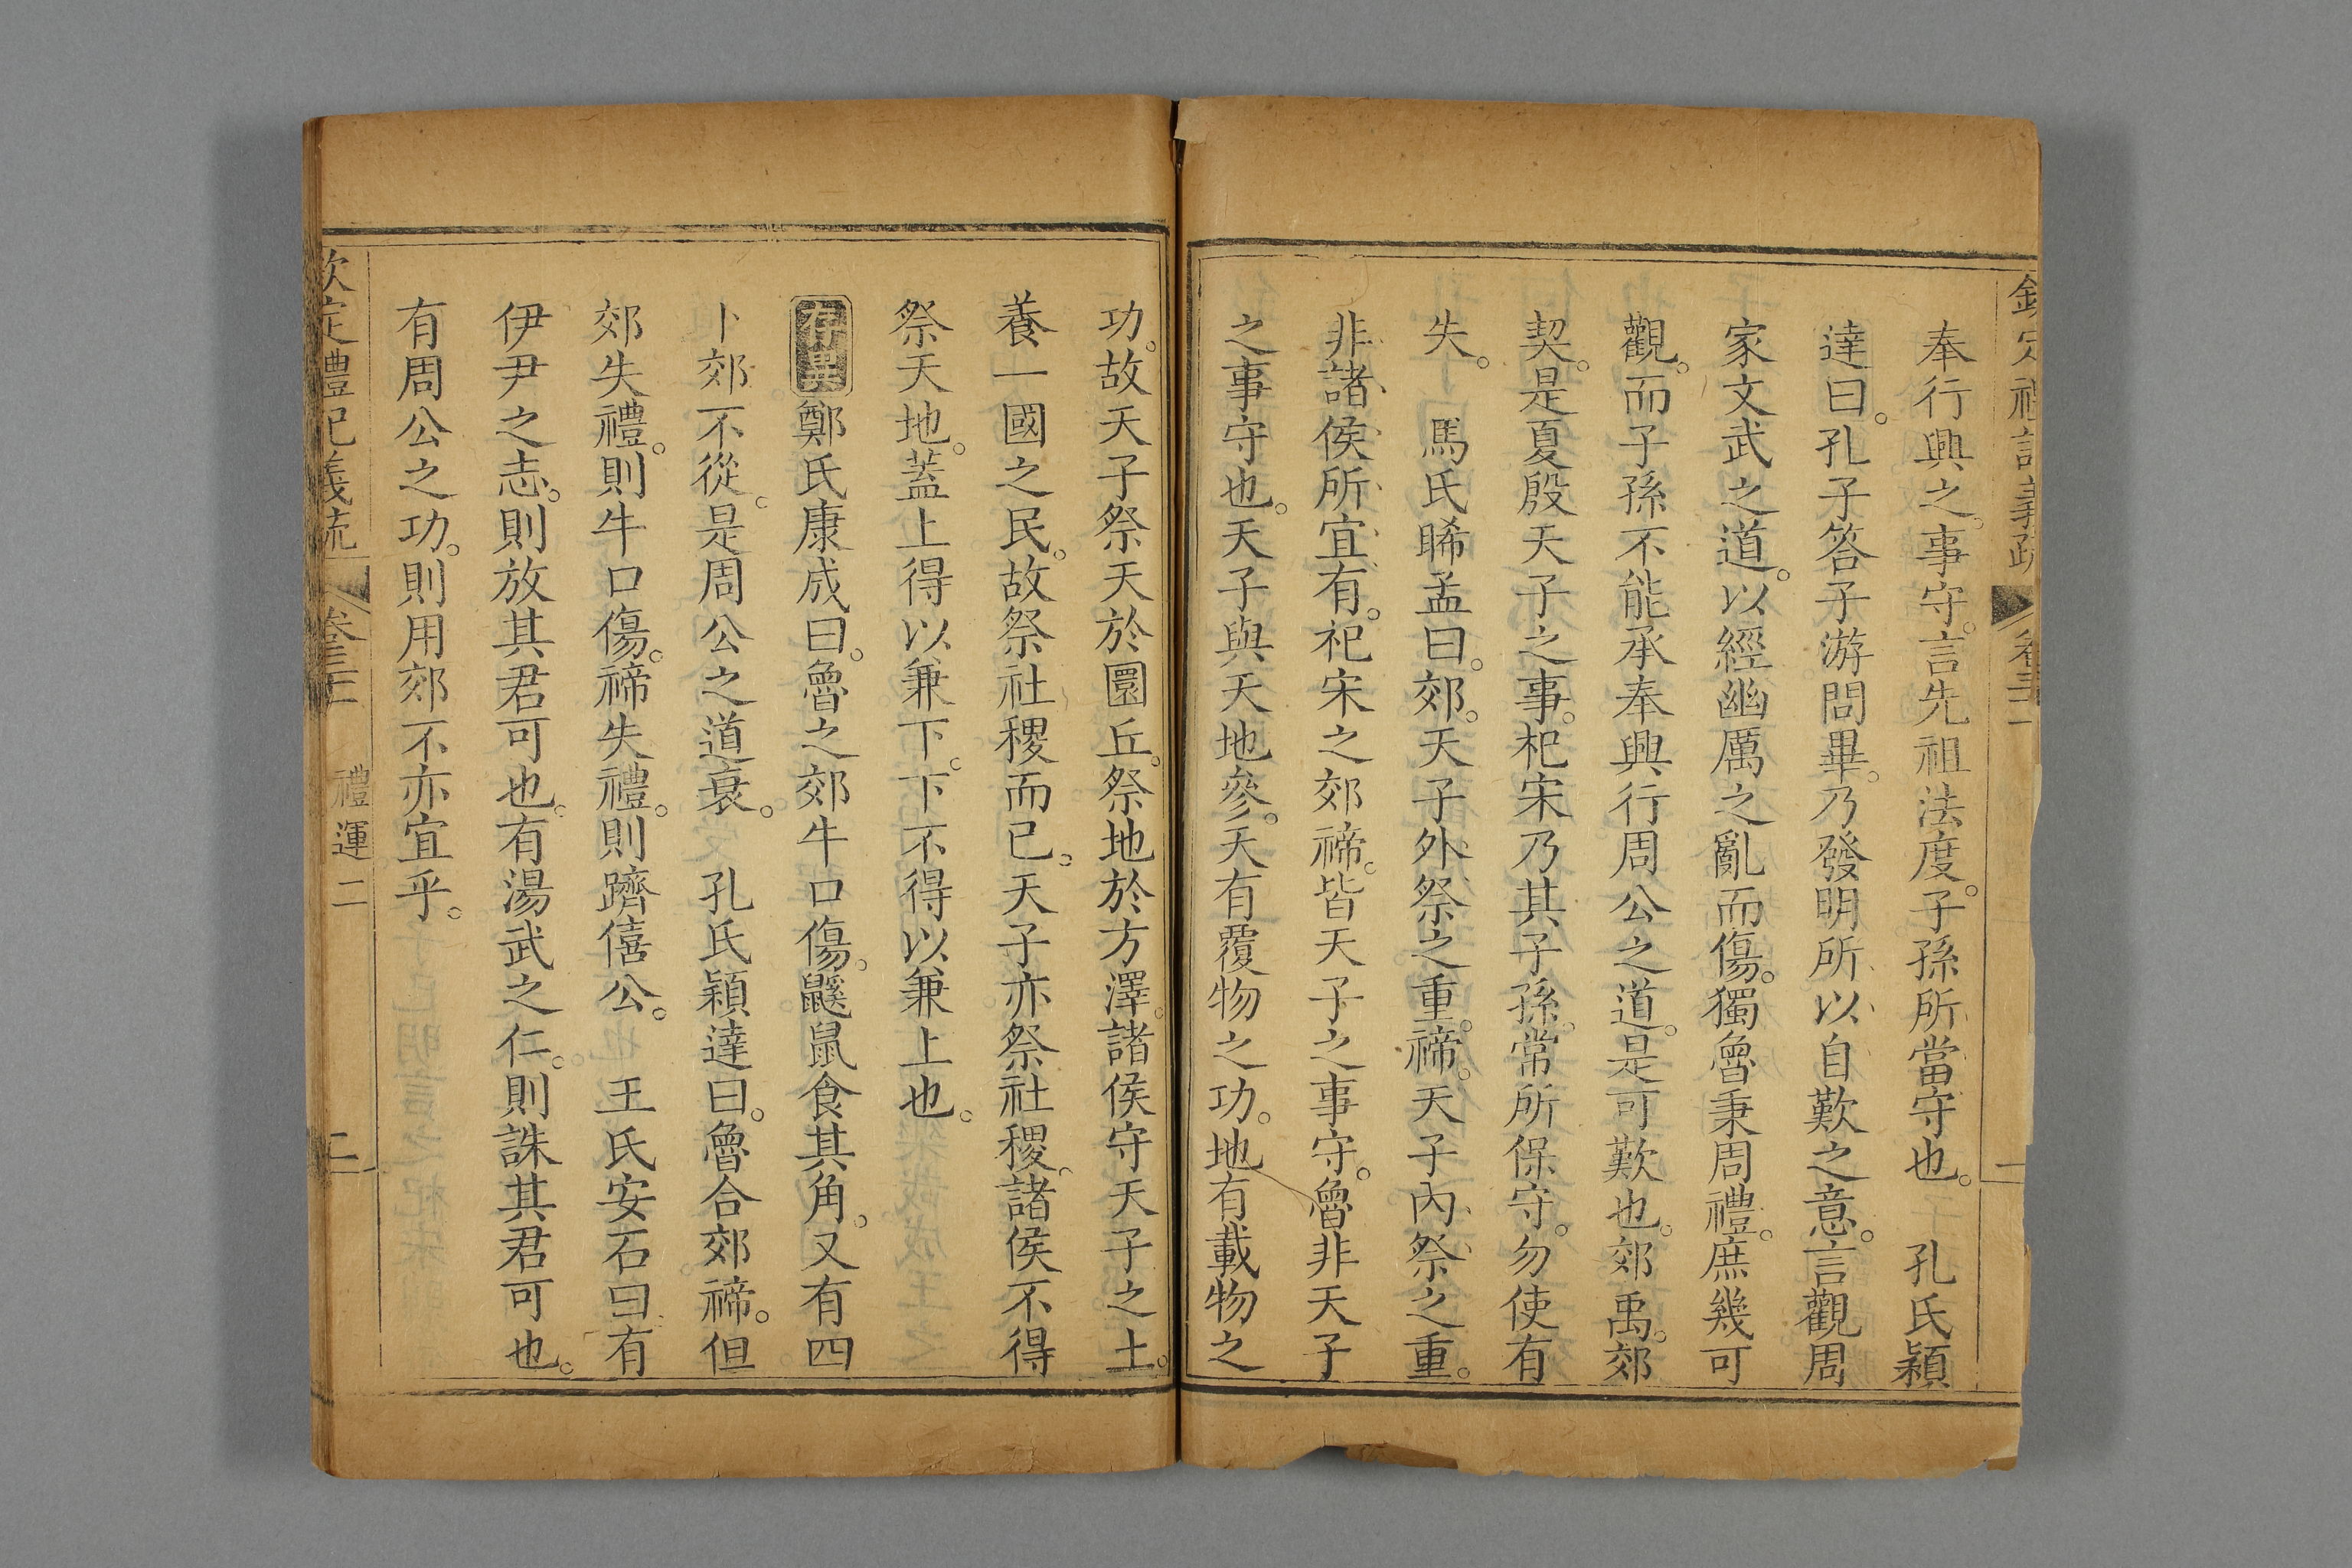 奉行興之。事守。言先祖法度。子孫所當守也。　孔氏穎
達曰。孔子答子游問畢。乃發明所以自歎之意。言觀周
家文武之道。以經幽厲之亂而傷。獨魯秉周禮。庶幾可
觀。而子孫不能承奉興行周公之道。是可歎也。郊禹。郊
契。是夏殷天子之事。杞宋乃其子孫。常所保守。勿使有
失。　馬氏睎孟曰。郊。天子外祭之重。禘。天子內祭之重。
非諸侯所宜有。祀宋之郊禘。皆天子之事守。魯非天子
之事守也。天子與天地參。天有覆物之功。地有載物之
功。故天子祭天於圜丘。祭地於方澤。諸侯守天子之土。
養一國之民。故祭社稷而已。天子亦祭社稷。諸侯不得
祭天地。蓋上得以兼下。下不得以兼上也。
存異鄭氏康成曰。魯之郊牛口傷。鼷鼠食其角。又有四
卜郊不從。是周公之道衰。　孔氏穎達曰。魯合郊禘。但
郊失禮。則牛口傷。禘失禮。則躋僖公。　王氏安石曰有
伊尹之志。則放其君可也。有湯武之仁。則誅其君可也。
有周公之功。則用郊不亦宜乎。
欽定禮記義疏　卷三十一　禮運二　二